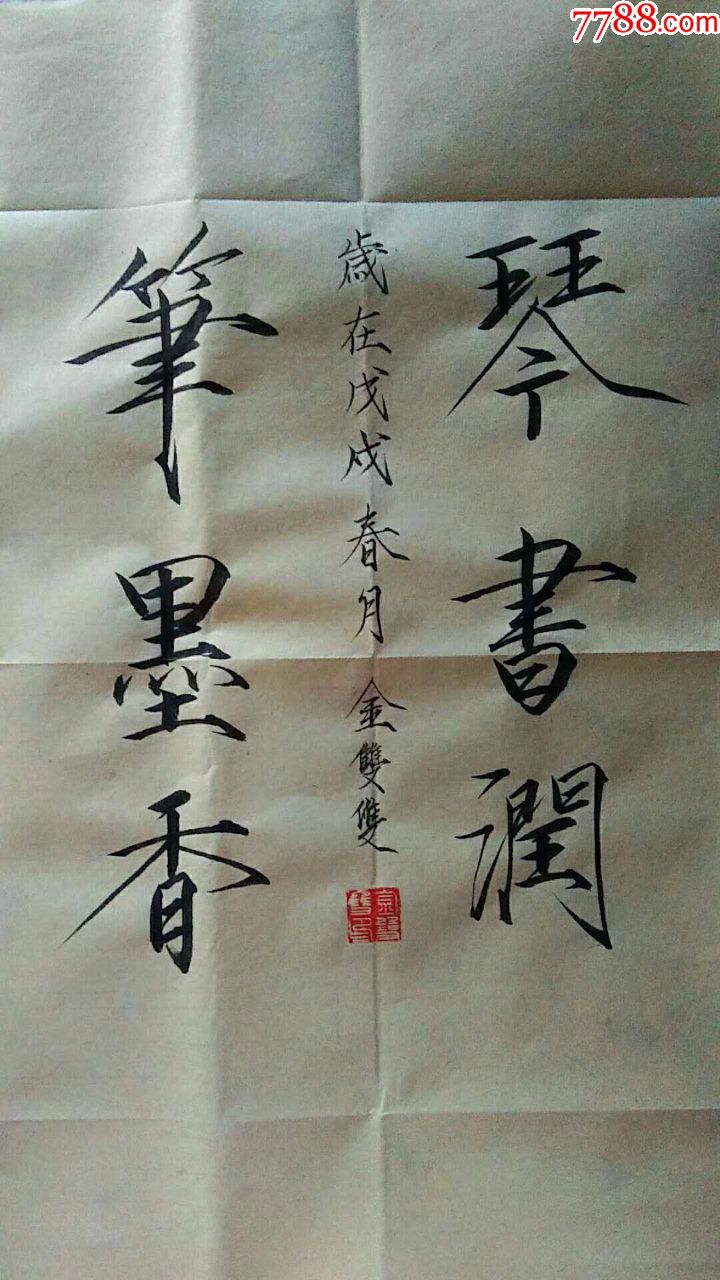 7788.com
琴書潤
歲在戊戌春月 金雙雙
筆墨香